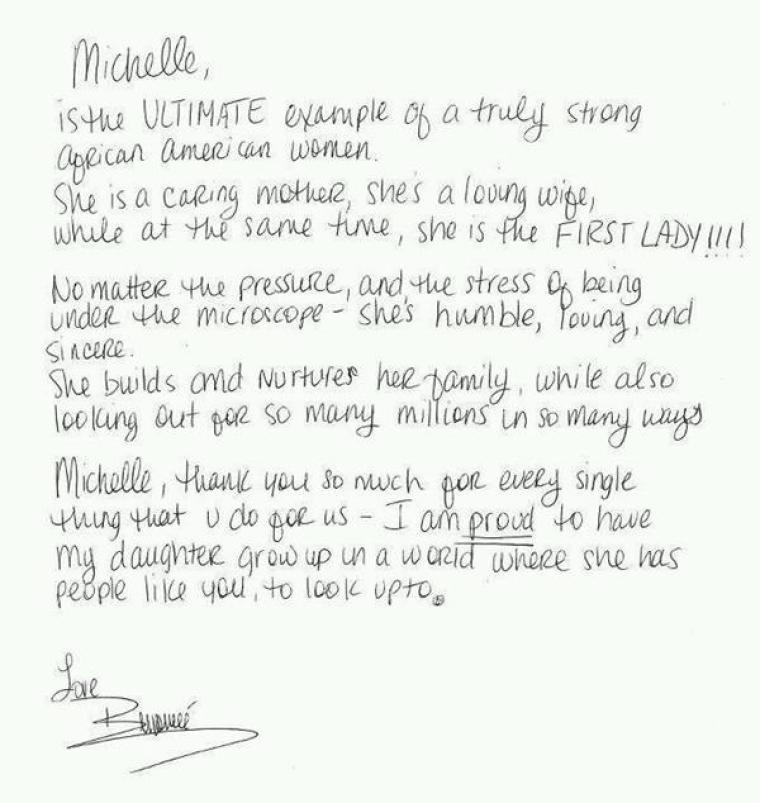 Michelle,
is the ULTIMATE example of a truly strong
african american women.
She is a caring mother, she's a loving wife,
while at the same time, she is the FIRST LADY!!!!
No matter the pressure, and the stress of being
under the microscope - she's humble, loving, and
sincere.
She builds and nurtures her family, while also
looking out for so many millions in so many ways
Michelle, thank you so much for every single
thing that u do for us - I am proud to have
my daughter grow up in a world where she has
people like you, to look up to.
Love
Beyoncé